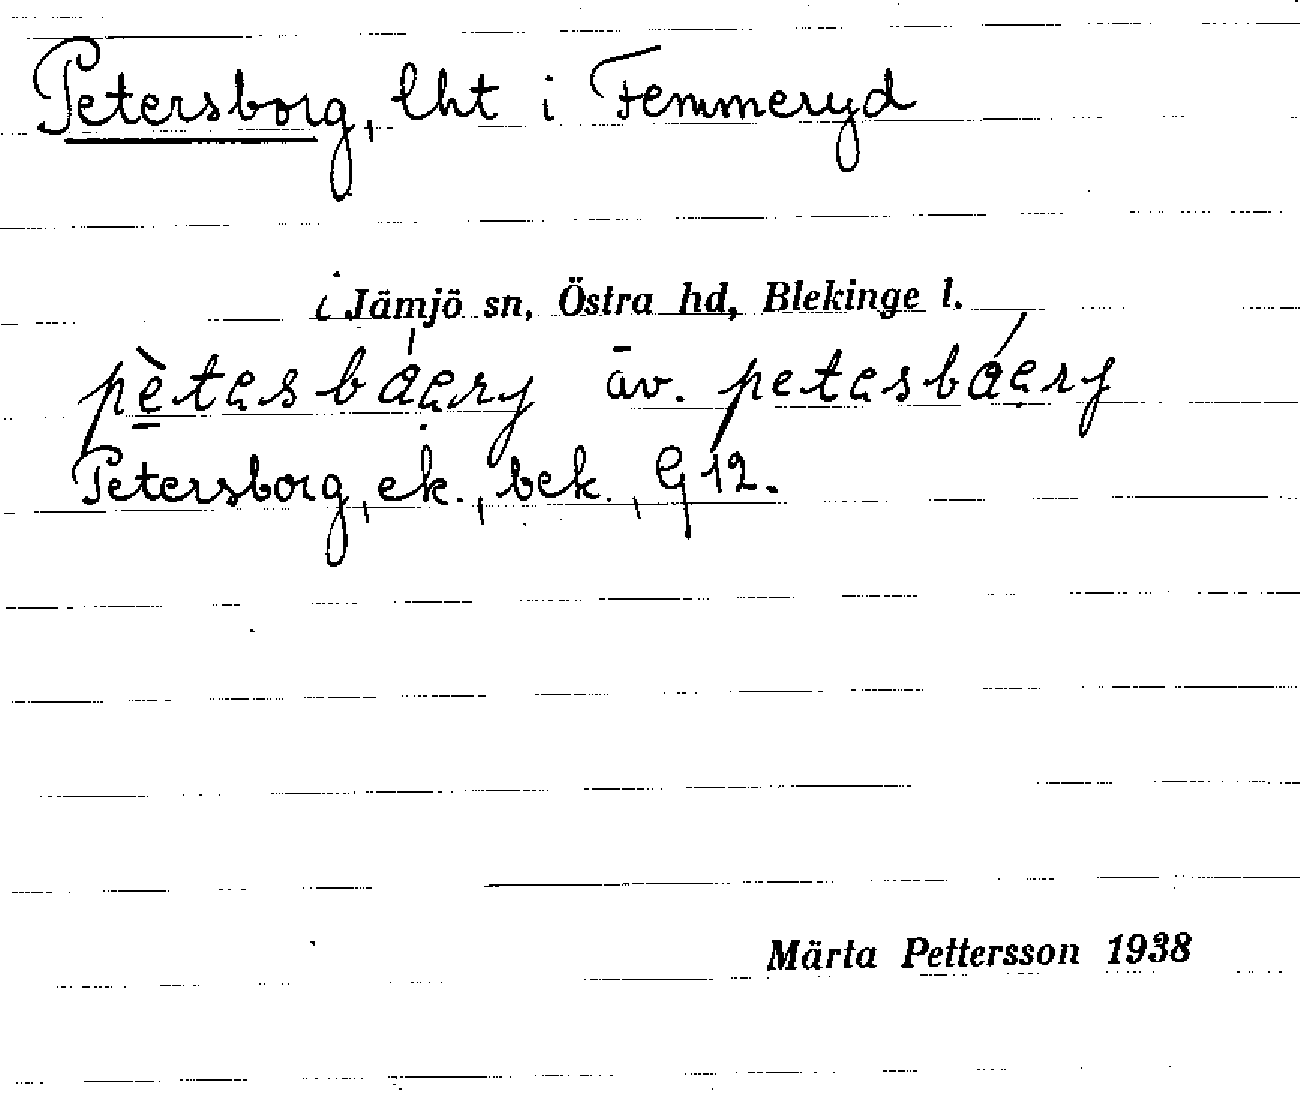 Petersborg, lht i Femmeryd
i Jämjö sn, Östra hd, Blekinge l.
pètəsbáərj äv. petəsbáərj
Petersborg, ek., bek., G 12.
Märta Pettersson 1938